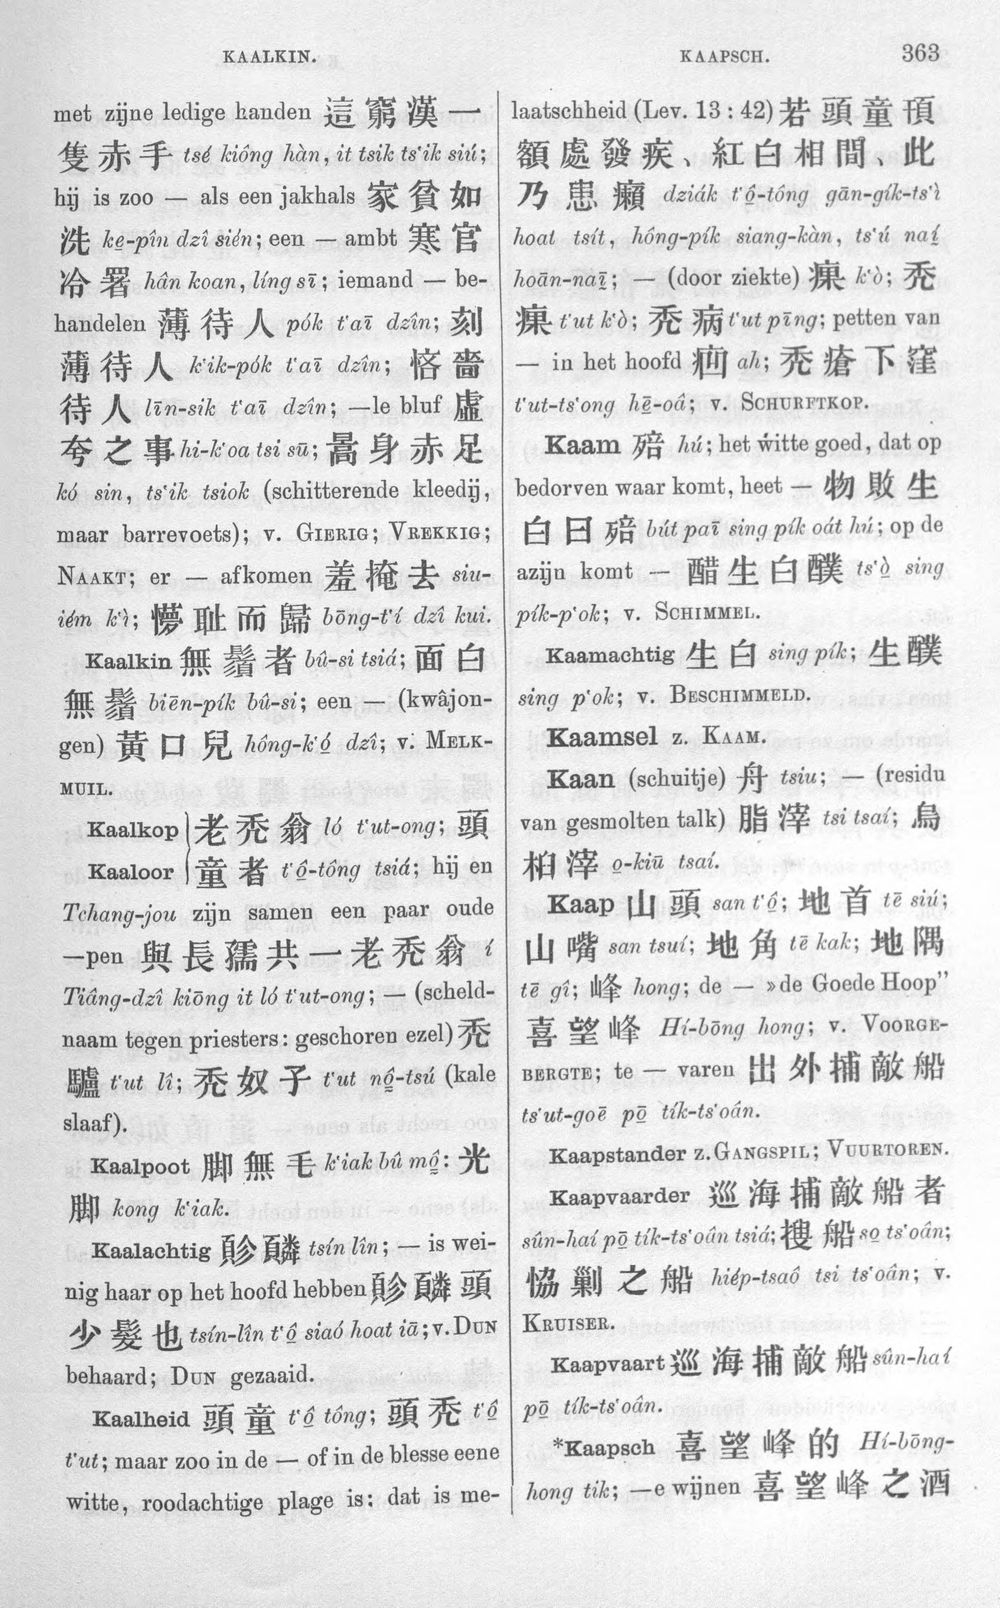 KAALKIN.
KAAPSCH.
363
met zijne ledige handen 這窮漢一
隻赤手 tsé kiông hàn, it tsik ts‘ik siú;
hij is zoo — als een jakhals 家貧如
洗 ke̱-pîn dzî sién; een — ambt 寒官
冷署 hân koan, líng sī; iemand — be-
handelen 薄待人 pók t‘aī dzîn; 刻
薄待人 k‘ik-pók t‘aī dzîn; 悋嗇
待人 līn-sik t‘aī dzîn; —le bluf 虛
夸之事 hi-k‘oa tsi sū; 暠身赤足
kó sin, ts‘ik tsiok (schitterende kleedij,
maar barrevoets); v. GIERIG; VREKKIG;
NAAKT; er — afkomen 羞掩去 siu-
iém k‘ì; 懜耻而歸 bōng-t‘í dzî kui.
Kaalkin 無鬚者 bû-si tsiá; 面白
無鬚 biēn-pík bû-si; een — (kwâjon-
gen) 黃口兒 hông-k‘ó̱ dzî; v. MELK-
MUIL.
Kaalkop 老禿翁 ló t‘ut-ong; 頭
Kaaloor 童者 t‘ô̱-tông tsiá; hij en
Tchang-jou zijn samen een paar oude
—pen 與長孺共一老禿翁 í
Tiâng-dzî kiōng it ló t‘ut-ong; — (scheld-
naam tegen priesters: geschoren ezel) 禿
驢 t‘ut lî; 禿奴子 t‘ut nô̱-tsú (kale
slaaf).
Kaalpoot 脚無毛 k‘iak bû mô̱: 光
脚 kong k‘iak.
Kaalachtig 䪾䫰 tsín lîn; — is wei-
nig haar op het hoofd hebben 䪾䫰頭
少髮也 tsín-lîn t‘ô̱ siaó hoat iā; v. DUN
behaard; DUN gezaaid.
Kaalheid 頭童 t‘ô̱ tông; 頭禿 t‘ô̱
t‘ut; maar zoo in de — of in de blesse eene
witte, roodachtige plage is: dat is me-
laatschheid (Lev. 13 : 42) 若頭童頇
額處發疾、紅白相間、此
乃患癩 dziák t‘ô̱-tông gān-gík-ts‘ì
hoat tsít, hông-pík siang-kàn, ts‘ú naí̱
hoān-naī̱; — (door ziekte) 瘰 k‘ò; 禿
瘰 t‘ut k‘ò; 禿病 t‘ut pīng; petten van
— in het hoofd 㾑 ah; 禿瘡下窪
t‘ut-ts‘ong hē̱-oâ; v. SCHURFTKOP.
Kaam 殕 hú; het witte goed, dat op
bedorven waar komt, heet — 物敗生
白曰殕 bút paī sing pík oát hú; op de
azijn komt — 醋生白醭 ts‘ò̱ sing
pík-p‘ok; v. SCHIMMEL.
Kaamachtig 生白 sing pík; 生醭
sing p‘ok; v. BESCHIMMELD.
Kaamsel z. KAAM.
Kaan (schuitje) 舟 tsiu; — (residu
van gesmolten talk) 脂滓 tsi tsaí; 烏
桕滓 o̱-kiū tsaí.
Kaap 山頭 san t‘ô̱; 地首 tē siú;
山嘴 san tsuí; 地角 tē kak; 地隅
tē gî; 峰 hong; de — »de Goede Hoop”
喜望峰 Hí-bōng hong; v. VOORGE-
BERGTE; te — varen 出外捕敵船
ts‘ut-goē pō̱ tík-ts‘oân.
Kaapstander z. GANGSPIL; VUURTOREN.
Kaapvaarder 巡海捕敵船者
sûn-haí pō̱ tík-ts‘oân tsiá; 搜船 so̱ ts‘oân;
恊剿之船 hiép-tsaô tsi ts‘oân; v.
KRUISER.
Kaapvaart 巡海捕敵船 sûn-haí
pō̱ tík-ts‘oân.
*Kaapsch 喜望峰的 Hí-bōng-
hong tik; —e wijnen 喜望峰之酒